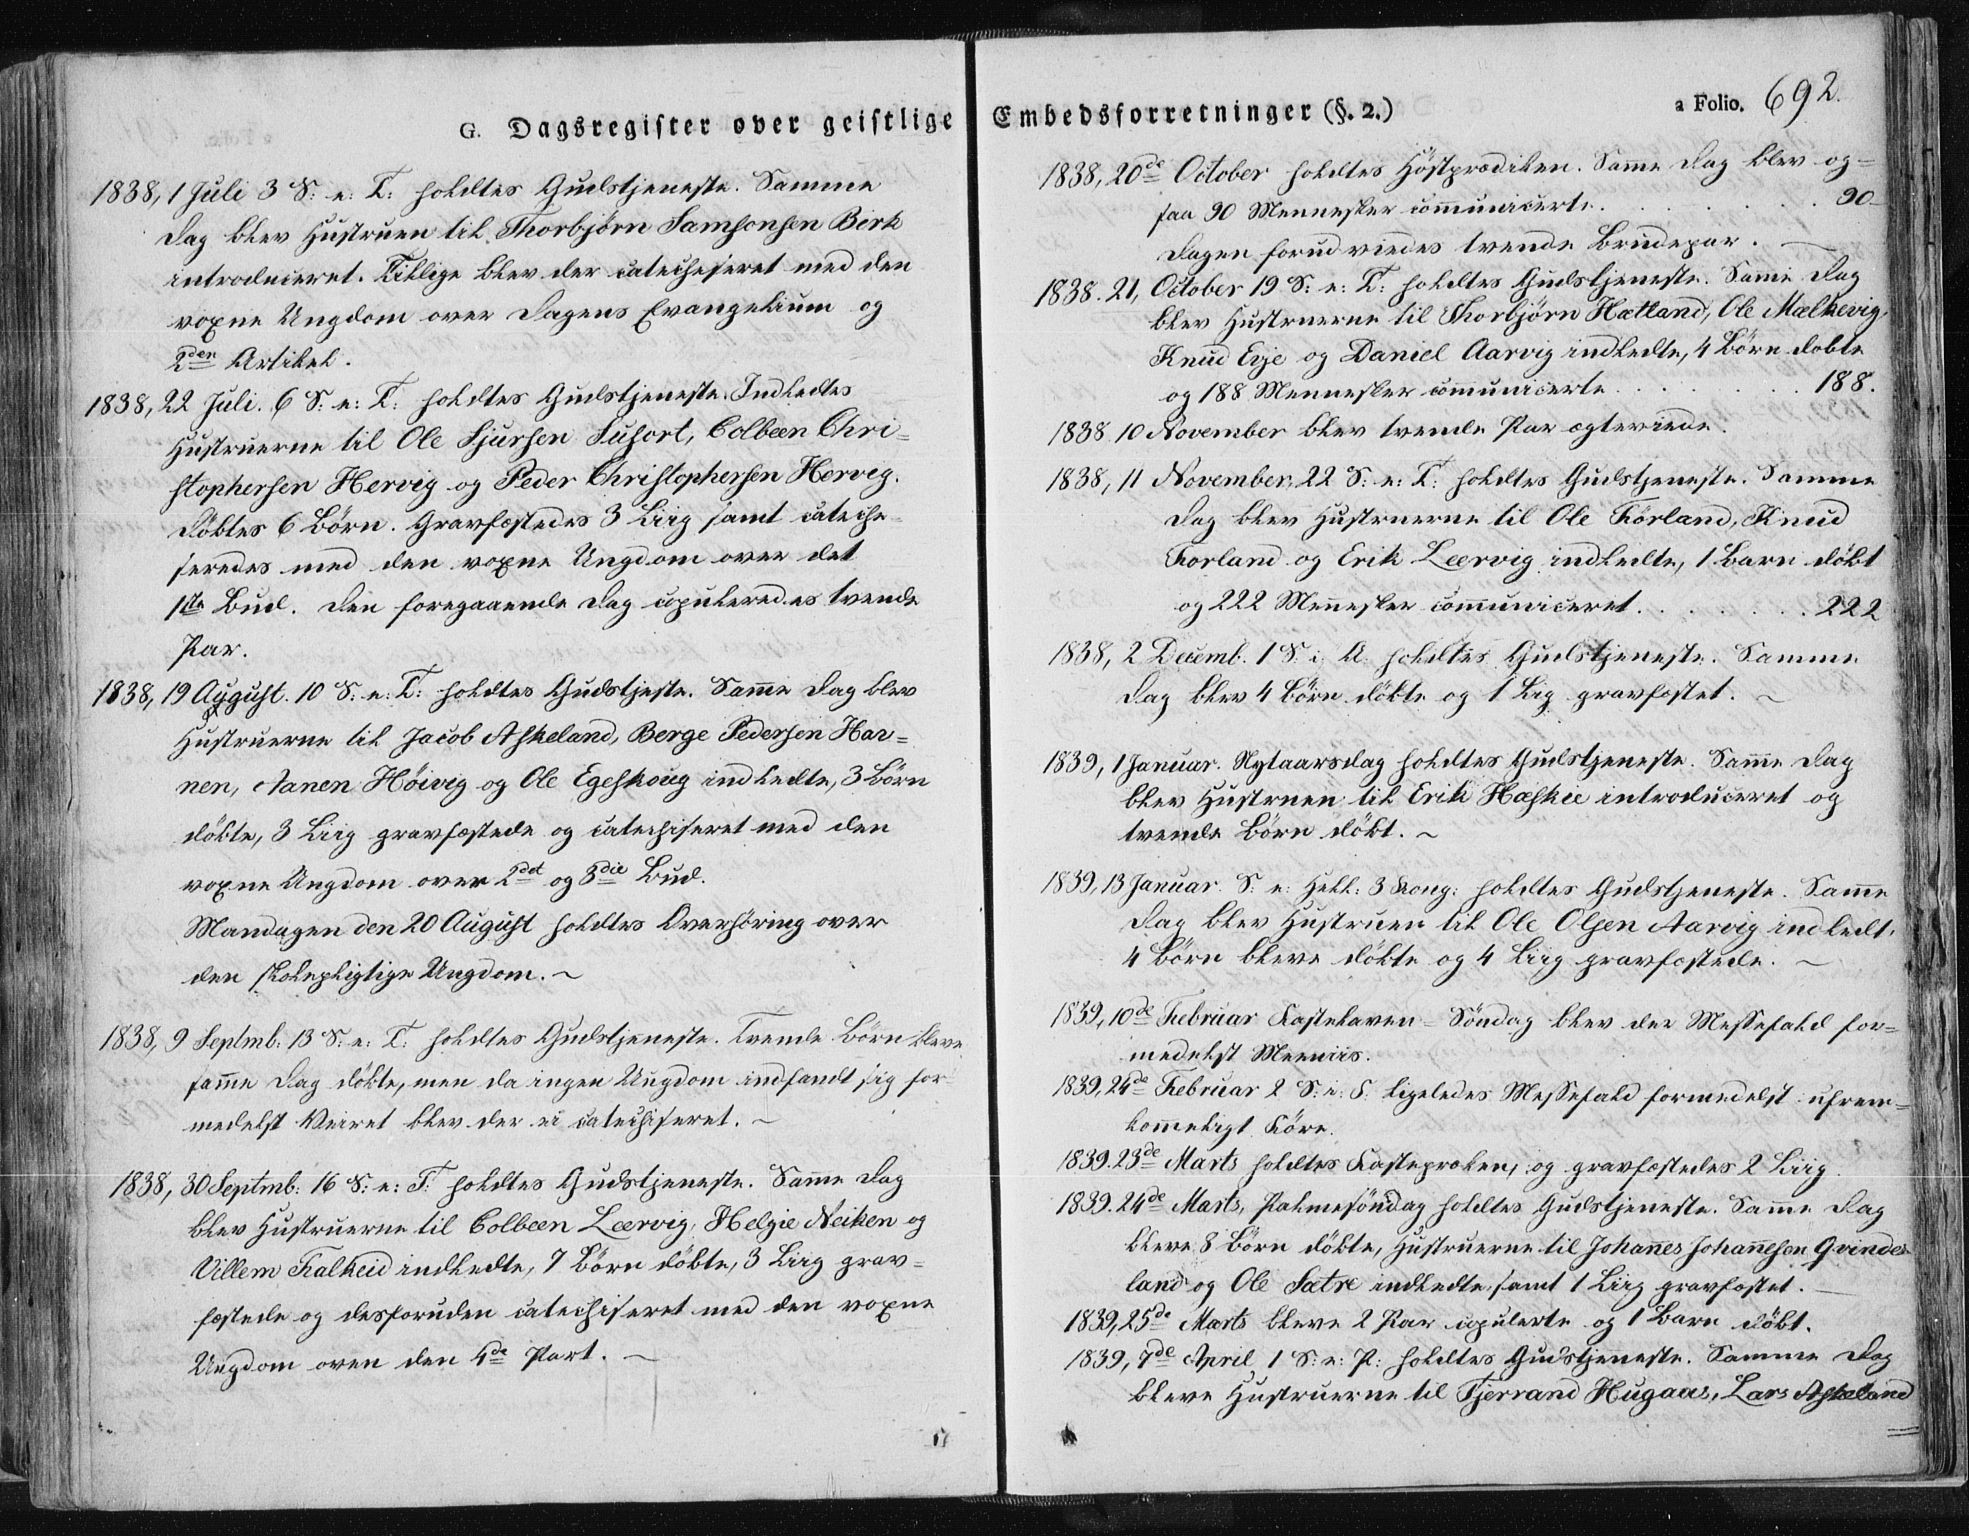 G. Dagsregister over geistlige
1838, 1 Juli 3 S: e: T: holdtes Gudstjeneste. Samme
Dag blev Hustruen til Thorbjørn Samsonsen Birk
introduceret. Tillige blev der catecheseret med den
voxne Ungdom over Dagens Evangelium og
2den Artikel.
1838, 22 Juli. 6 S: e: T: holdtes Gudstjeneste. Indledtes
Hustruerne til Ole Sjursen Susort, Colbeen Chri=
stophersen Hervig og Peder Christophersen Hervig.
döbtes 6 Börn. Gravfæstedes 3 Liig samt cateche
seredes med den voxne Ungdom over det
1te Bud. Den foregaaende Dag copuleredes tvende
Par.
1838, 19 August. 10 S: e: T: holdtes Gudstjeste. Samme Dag blev
Hustruerne til Jacob Askeland, Berge Pedersen Har=
nen, Aanen Höivig og Ole Egeskoug indledte, 3 Börn
döbte, 3 Liig gravfæstede og catechiseret med den
voxne Ungdom over 2det og 3die Bud.
Mandagen den 20 August holdtes Overhöring over
den skolepligtige Ungdom. ~
1838, 9 Septmb: 13 S: e: T: holdtes Gudstjeneste. Tvende Börn bleve
samme Dag döbte, men da ingen Ungdom indfandt sig for
medelst Veiret blev der ei catechiseret. ~
1838, 30 Septmb: 16 S: e: T: holdtes Gudstjeneste. Samme Dag
blev Hustruerne til Colbeen Leervig, Helgie Neiken og
Villem Falkeid indledte, 7 Börn döbte, 3 Liig grav=
fæstede og desforuden catechiseret med den voxne
Ungdom oven den 4de Part. ~
Embedsforretninger (§. 2.)
a Folio. 692.
1838, 20de October holdtes Höstprædiken. Samme Dag blev og=
saa 90 Mennesker communicerte . . . . . . . 90
Dagen forud viedes tvende Brudepar. ~
1838. 21, October 19 S: e: T: holdtes Gudstjeneste. Samme Dag
blev Hustruerne til Thorbjörn Hætland, Ole Mælkevig,
Knud Evje og Daniel Aarvig indledte, 4 Börn döbte
og 188 Mennesker communicerte . . . . . . . 188.
1838 10 November blev tvende Par ægteviede.
1838, 11 November, 22 S: e: T: holdtes Gudstjeneste. Samme
Dag blev Hustruerne til Ole Förland, Knud
Forland og Erik Leervig indledte, 1 Barn döbt
og 222 Mennesker communiceret. . . . . . . . 222
1838, 2 Decemb. 1 S. i A. holdtes Gudstjeneste. Samme
Dag blev 4 Börn döbte og 1 Lig gravfæstet. ~
1839, 1 Januar. Nytaarsdag holdtes Gudstjeneste. Samme Dag
blev Hustruen til Erik Hæskie introduceret og
tvende Börn döbt. ~
1839, 13 Januar. S: e: Hell: 3 Kong: holdtes Gudstjeneste. Samme
Dag blev Hustruen til Ole Olsen Aarvig indledt,
4 Börn bleve döbte og 4 Liig gravfæstede. ~
1839, 10de Februar Fastelaven=Söndag blev der Messefald for=
medelst Meeniis.
1839, 24de Februar 2 S: i: F: ligeledes Messefald formedelst ufrem=
kommeligt Före.
1839. 23de Marts holdtes Fastepræken, og gravfæstedes 2 Liig.
1839. 24de Marts, Palmesöndag holdtes Gudstjeneste. Samme Dag
bleve 8 Börn döbte, Hustruerne til Johannes Johannesen Qvindes
land og Ole Sætre indledte, samt 1 Liig gravfæstet. ~
1839, 25de Marts bleve 2 Par copulerte og 1 Barn döbt.
1839, 7de April 1 S: e: P: holdtes Gudstjeneste. Samme Dag
bleve Hustruerne til Tjerrand Hugaas, Lars Askeland